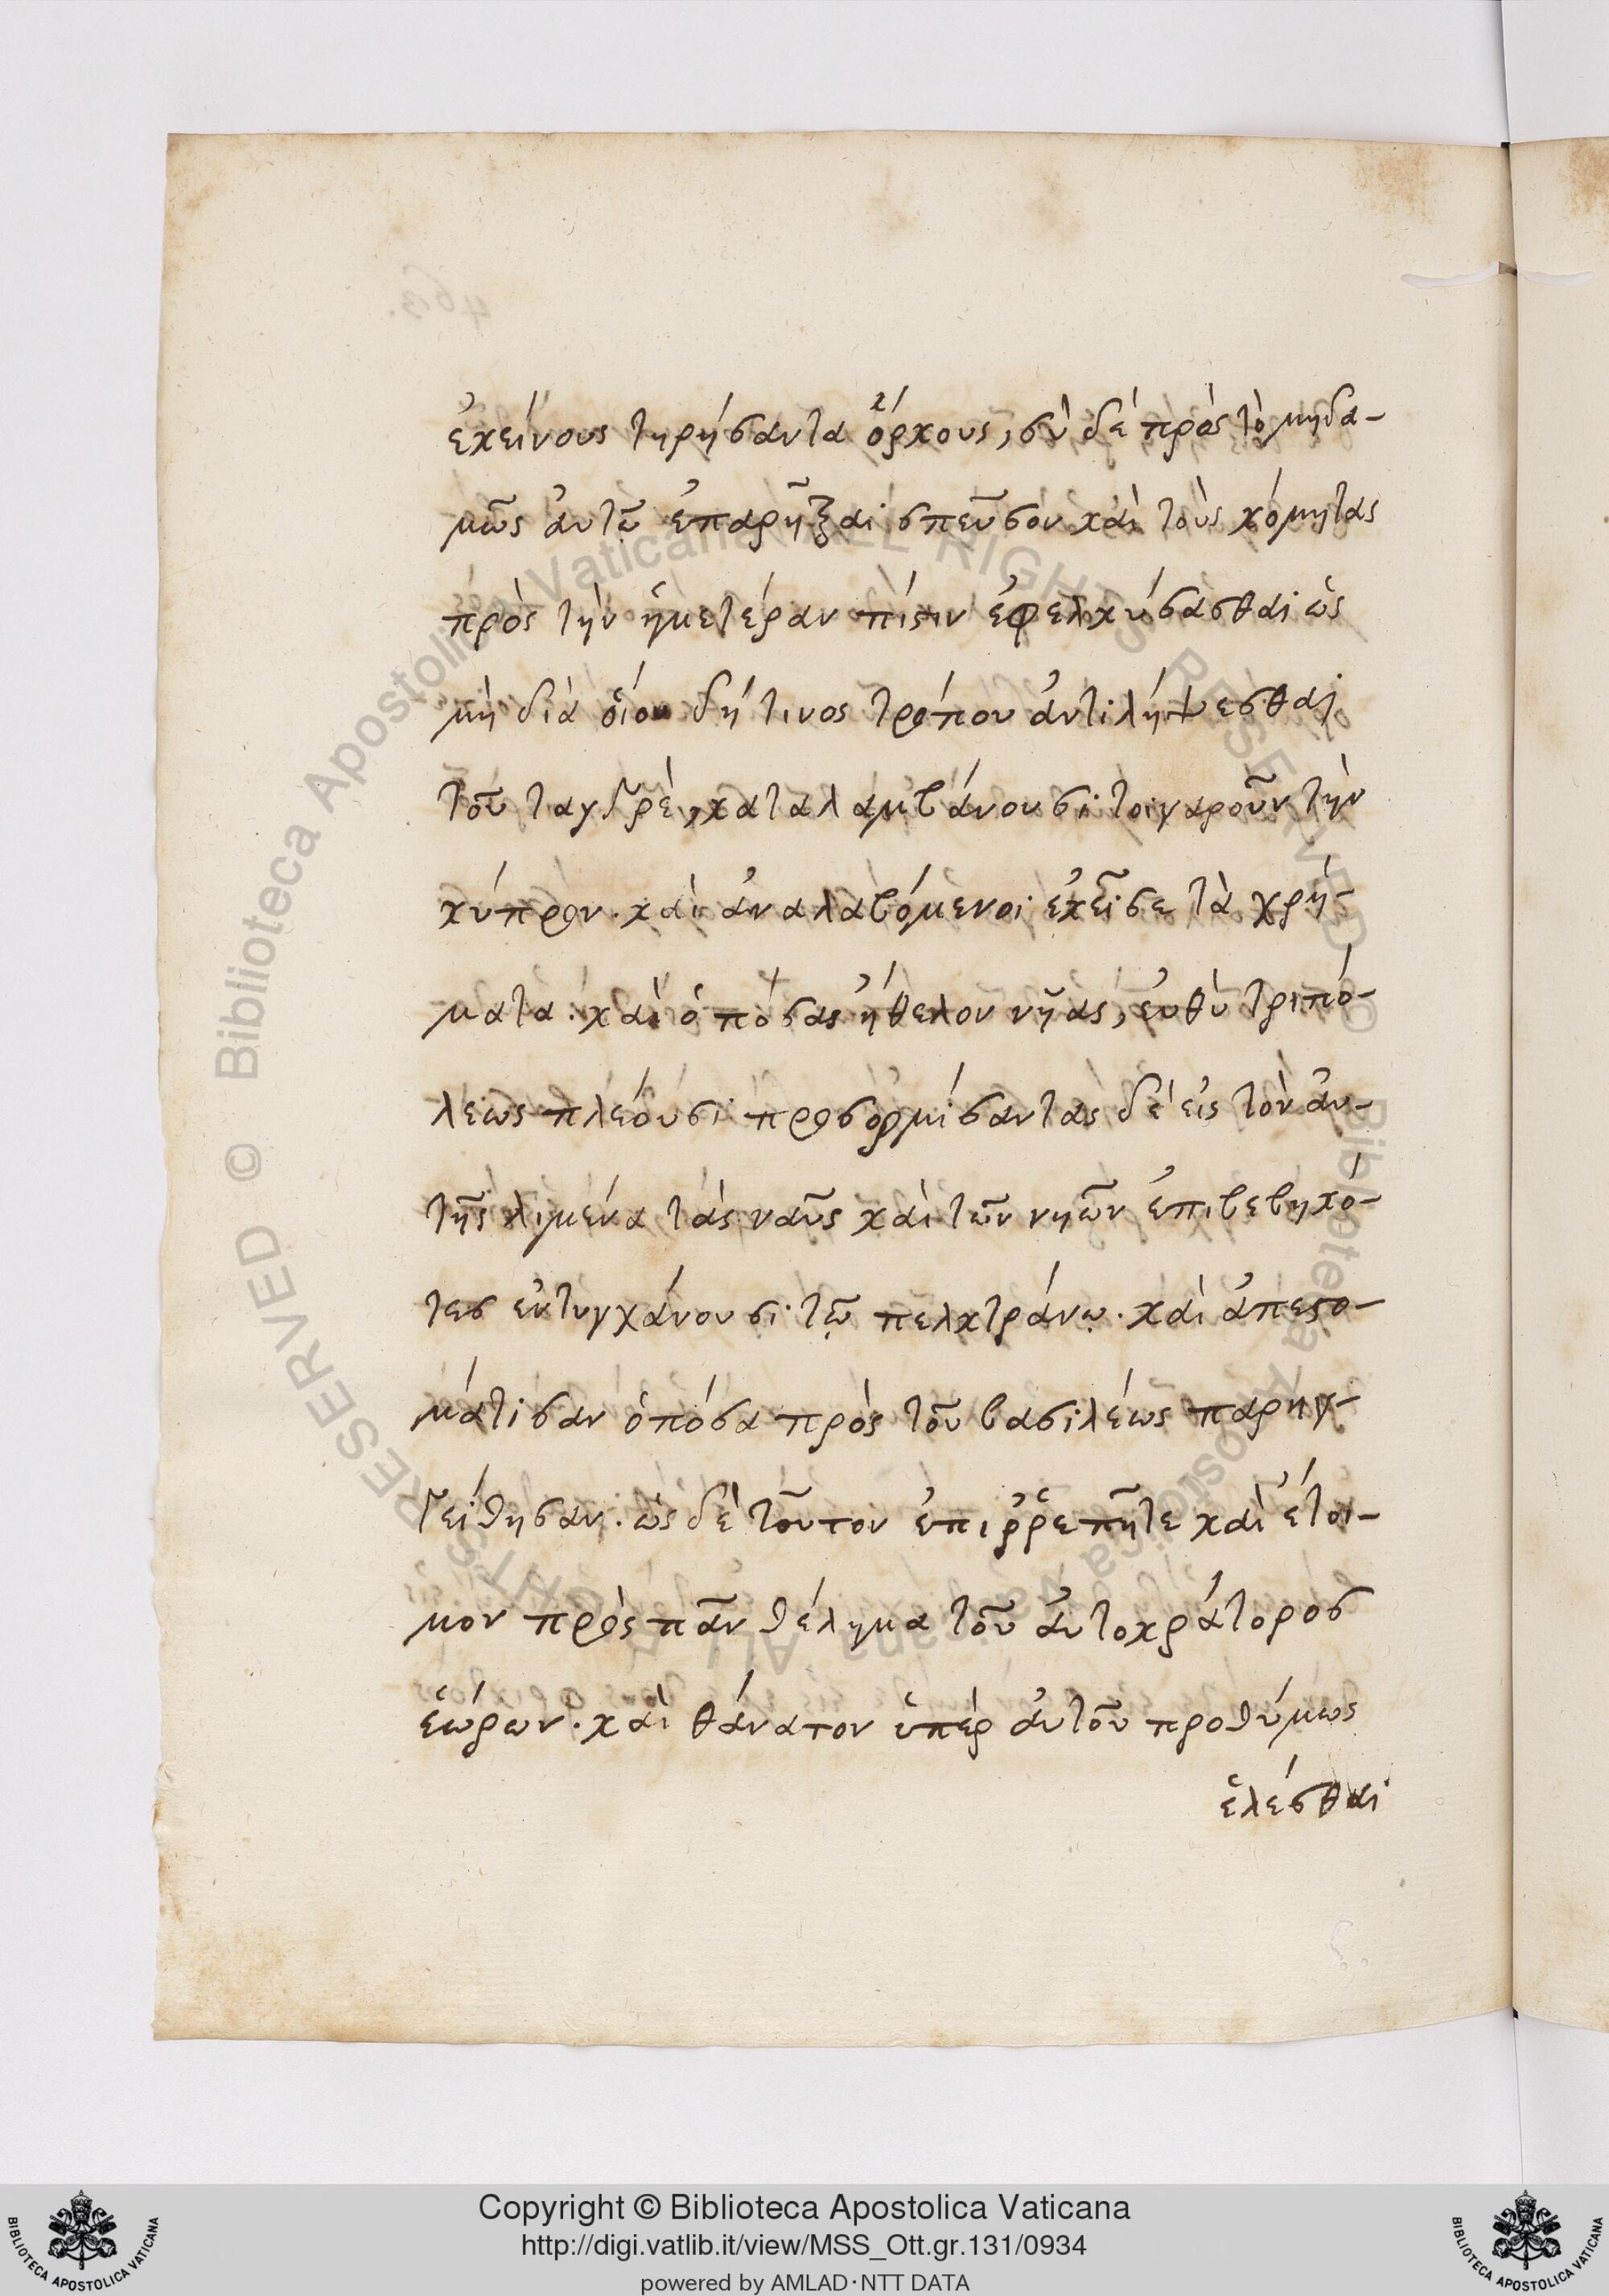 ἐκείνους τηρήσαντα ὅρκους, σὺ δὲ πρὸς τὸ μηδα-
μῶς ἀυτῷ ἐπαρῆξαι σπεῦσον καὶ τοὺς κόμητας
πρὸς τὴν ἡμετέραν πίστιν ἐφελκύσασθαι ὡς
μὴ διὰ οἵου δή τινος τρόπου ἀντιλήψεσθαι
τοῦ ταγδρὲ, καταλαμβάνουσι τοιγαροῦν τὴν
κύπρον. καὶ ἀναλαβόμενοι ἐκεῖσε τὰ χρή-
ματα. καὶ ὁπόσας ἤθελον νῆας, ἐυθὺ τριπό-
λεως πλέουσι προσορμίσαντας δὲ εἰς τὸν ἀυ-
τῆς λιμένα τὰς ναῦς καὶ τῶν νηῶν ἐπιβεβηκό-
τες ἐντυγχάνουσι τῷ πελκτράνῳ. καὶ ἀπεστο-
μάτισαν ὁπόσα πρὸς τοῦ βασιλέως παρηγ-
γείθησαν. ὡς δὲ τοῦτον ἐπιῤῥεπῆτε καὶ ἕτοι-
μον πρὸς πᾶν θέλημα τοῦ ἀυτοκράτορος
ἑώρων. καὶ θάνατον ὑπὲρ ἀυτοῦ προθύμως
ἑλέσθαι
Copyright © Biblioteca Apostolica Vaticana
http://digi.vatlib.it/view/MSS_Ott.gr.131/0934
powered by AMLAD · NTT DATA